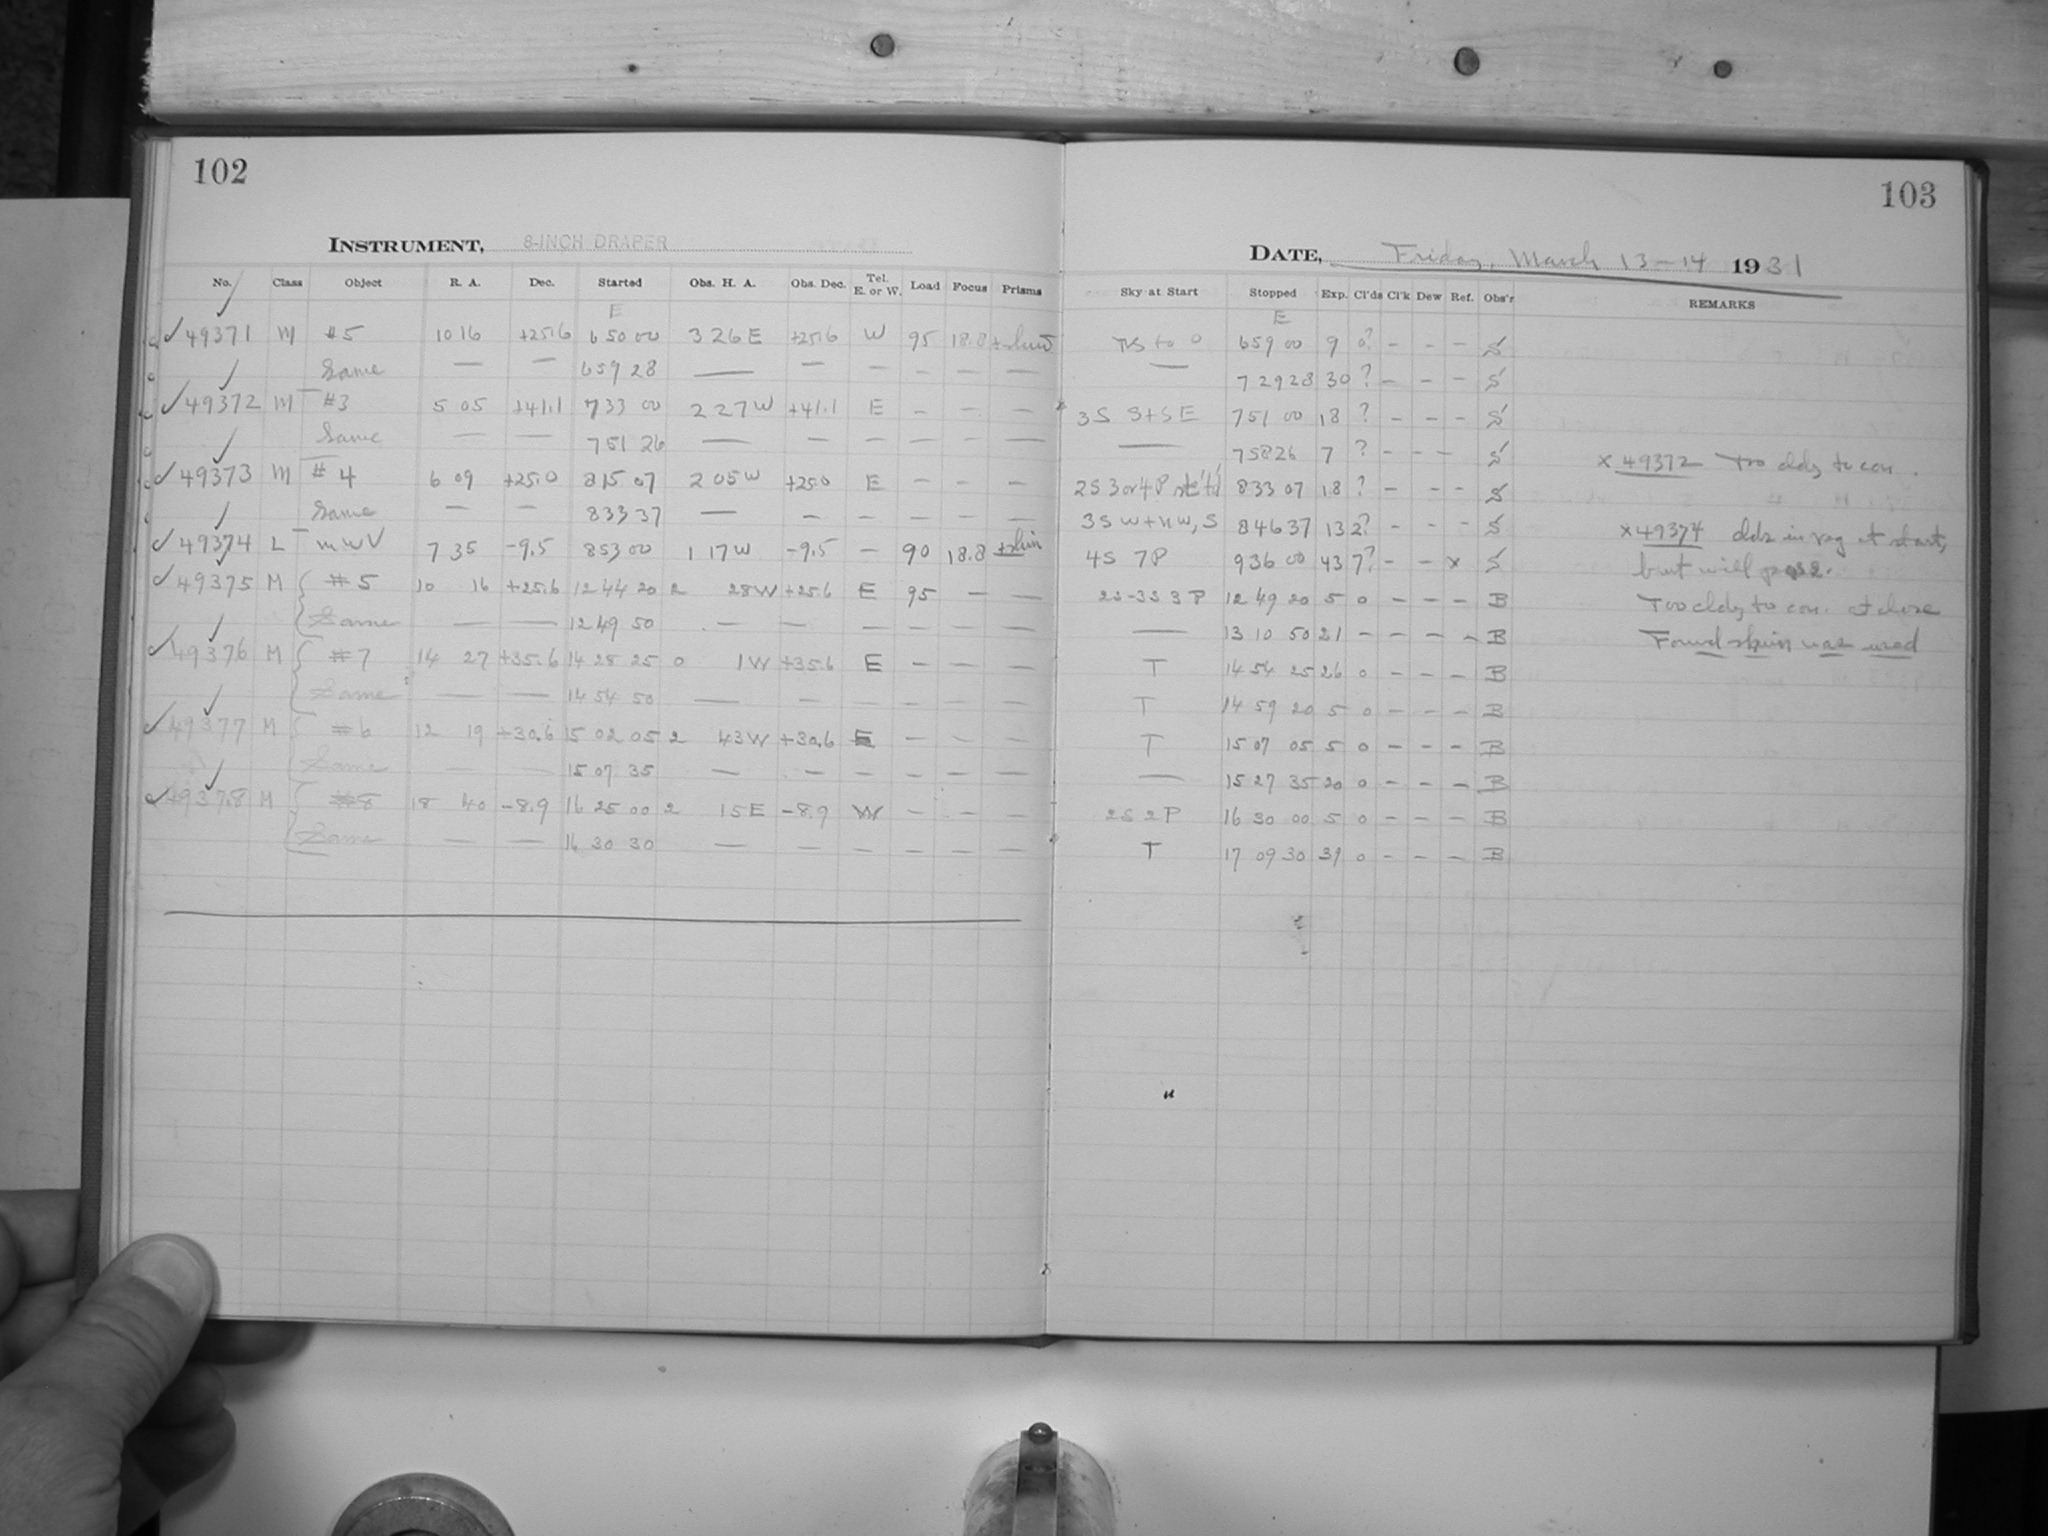 102
INSTRUMENT, 8-INCH DRAPER
No. Class Object R. A. Dec. Started Obs. H. A. Obs. Dec. Tel. E. or W. Load Focus Prisms
E
49371 M #5 10 16 +25.6 6 50 00 3 26 E +25.6 W 95 18.8
Same — — 6 59 28 — — — — — —
49372 M #3 5 05 +41.1 7 33 00 2 27 W +41.1 E — — —
Same — — 7 51 26 — — — — — —
49373 M #4 6 09 +25.0 8 15 07 2 05 W +25.0 E — — —
Same — — 8 33 37 — — — — — —
49374 L MWV 7 35 -9.5 8 53 00 1 17 W -9.5 — 90 18.8
49375 M #5 10 16 +25.6 12 44 20 2 28 W +25.6 E 95 — —
Same — — 12 49 50 — — — — — —
49376 M #7 14 27 +35.6 14 28 25 0 1 W +35.6 E — — —
Same — — 14 54 50 — — — — — —
49377 M #6 12 19 +30.6 15 02 05 2 43 W +30.6 E — — —
Same — — 15 07 35 — — — — — —
49378 M #8 18 40 -8.9 16 25 00 2 15 E -8.9 W — — —
Same — — 16 30 30 — — — — — —
103
DATE, Friday, March 13-14 1931
Sky at Start Stopped Exp. Cl'ds Cl'k Dew Ref. Obs'r REMARKS
E
to 0 6 59 00 9 0? — — — S
— 7 29 28 30 ? — — — S
3S S+SE 7 51 00 18 ? — — — S
— 7 58 26 7 ? — — — S
x 49372 Too cldy to con.
2S 3 or 4P 8 33 07 18 ? — — — S
3S W+NW, S 8 46 37 13 2? — — — S
x 49374 clds in reg at start,
4S 7P 9 36 00 43 7? — — x S
but will pass.
2S-3S 3P 12 49 20 5 0 — — — B
Too cldy to con. at close
— 13 10 50 21 — — — — B
Found skim was used
T 14 54 25 26 0 — — — B
T 14 59 20 5 0 — — — B
T 15 07 05 5 0 — — — B
— 15 27 35 20 0 — — — B
2S 2P 16 30 00 5 0 — — — B
T 17 09 30 39 0 — — — B